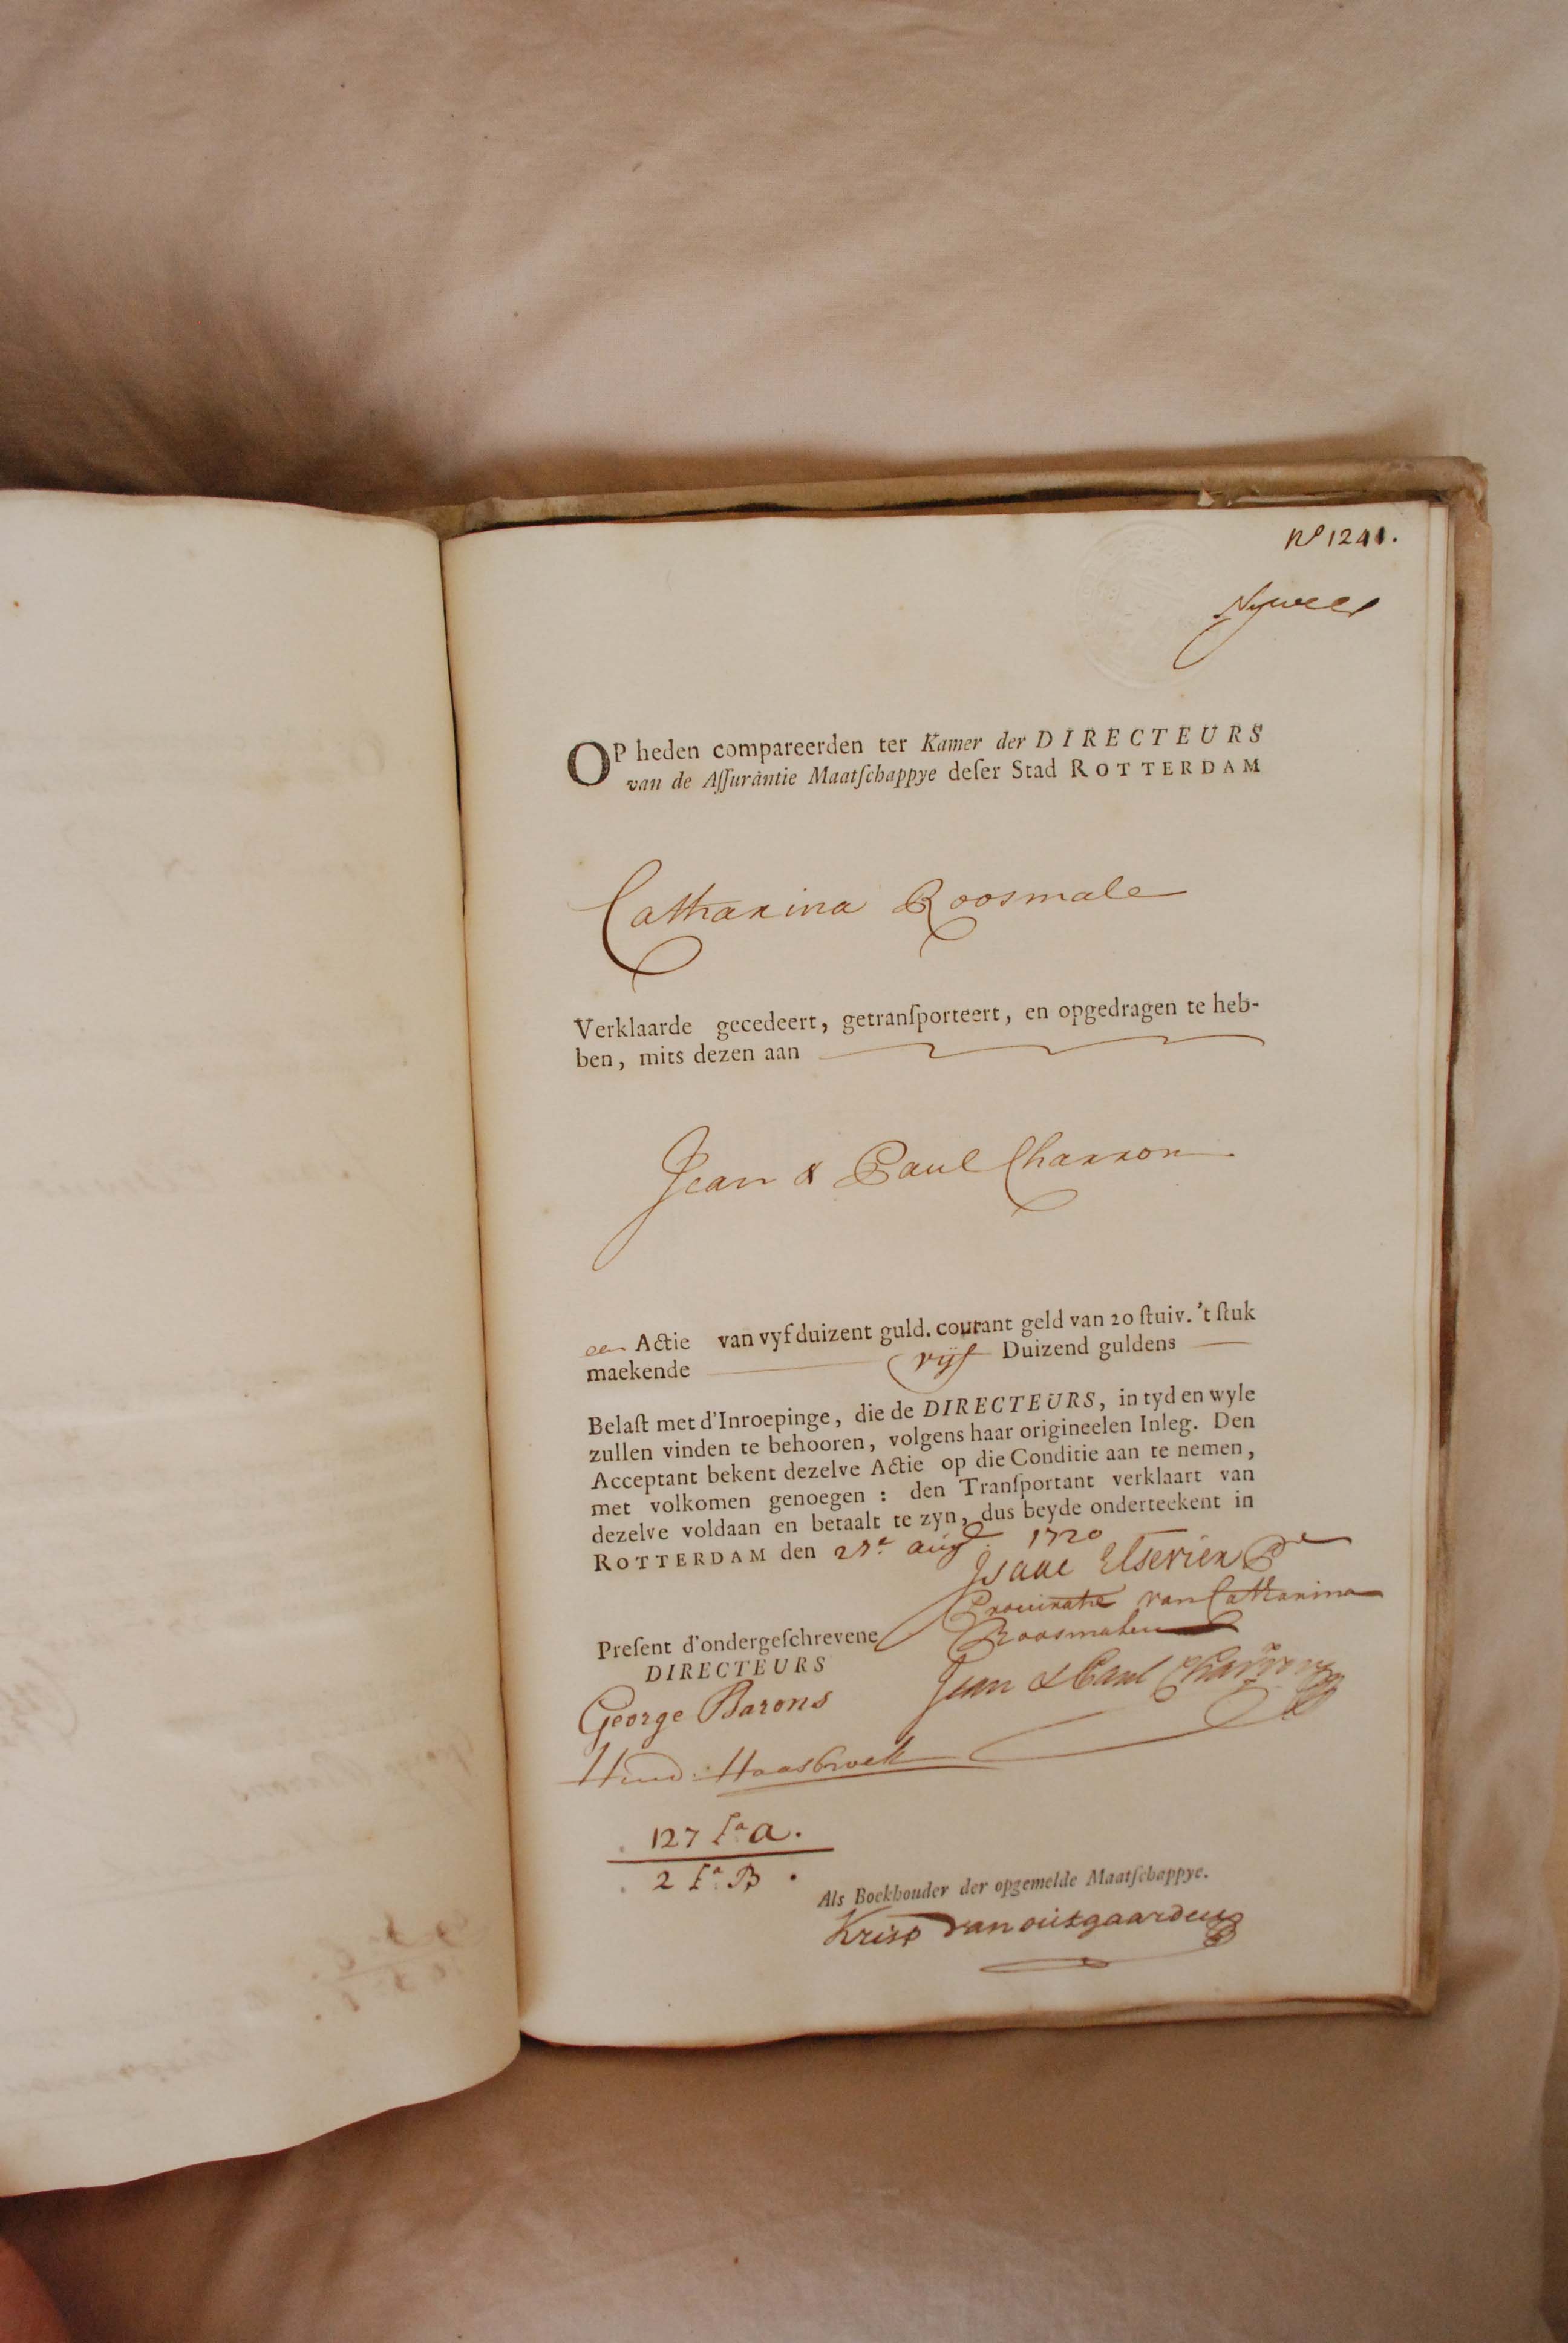 No 1241.
OP heden compareerden ter Kamer der DIRECTEURS
van de Aſſurantie Maatſchappye deſer Stad ROTTERDAM
Catharina Roosmale
Verklaarde gecedeert, getranſporteert, en opgedragen te heb-
ben, mits dezen aan
Jean & Paul Charron
een Actie van vyf duizent guld. courant geld van 20 ſtuiv. 't ſtuk
maekende vijf Duizend guldens
Belaſt met d'Inroepinge, die de DIRECTEURS, in tyd en wyle
zullen vinden te behooren, volgens haar origineelen Inleg. Den
Acceptant bekent dezelve Actie op die Conditie aan te nemen,
met volkomen genoegen : den Tranſportant verklaart van
dezelve voldaan en betaalt te zyn, dus beyde onderteekent in
ROTTERDAM den aug. 1720
Isaac
van Catharina
Preſent d'ondergeſchrevene Roosmalen
DIRECTEURS
Jean & Paul Charron
George Barons
Hend: Haasbroek
127 Fa. A.
2 Fa. B.
Als Boekhouder der opgemelde Maatſchappye.
Krisp van outgaarden